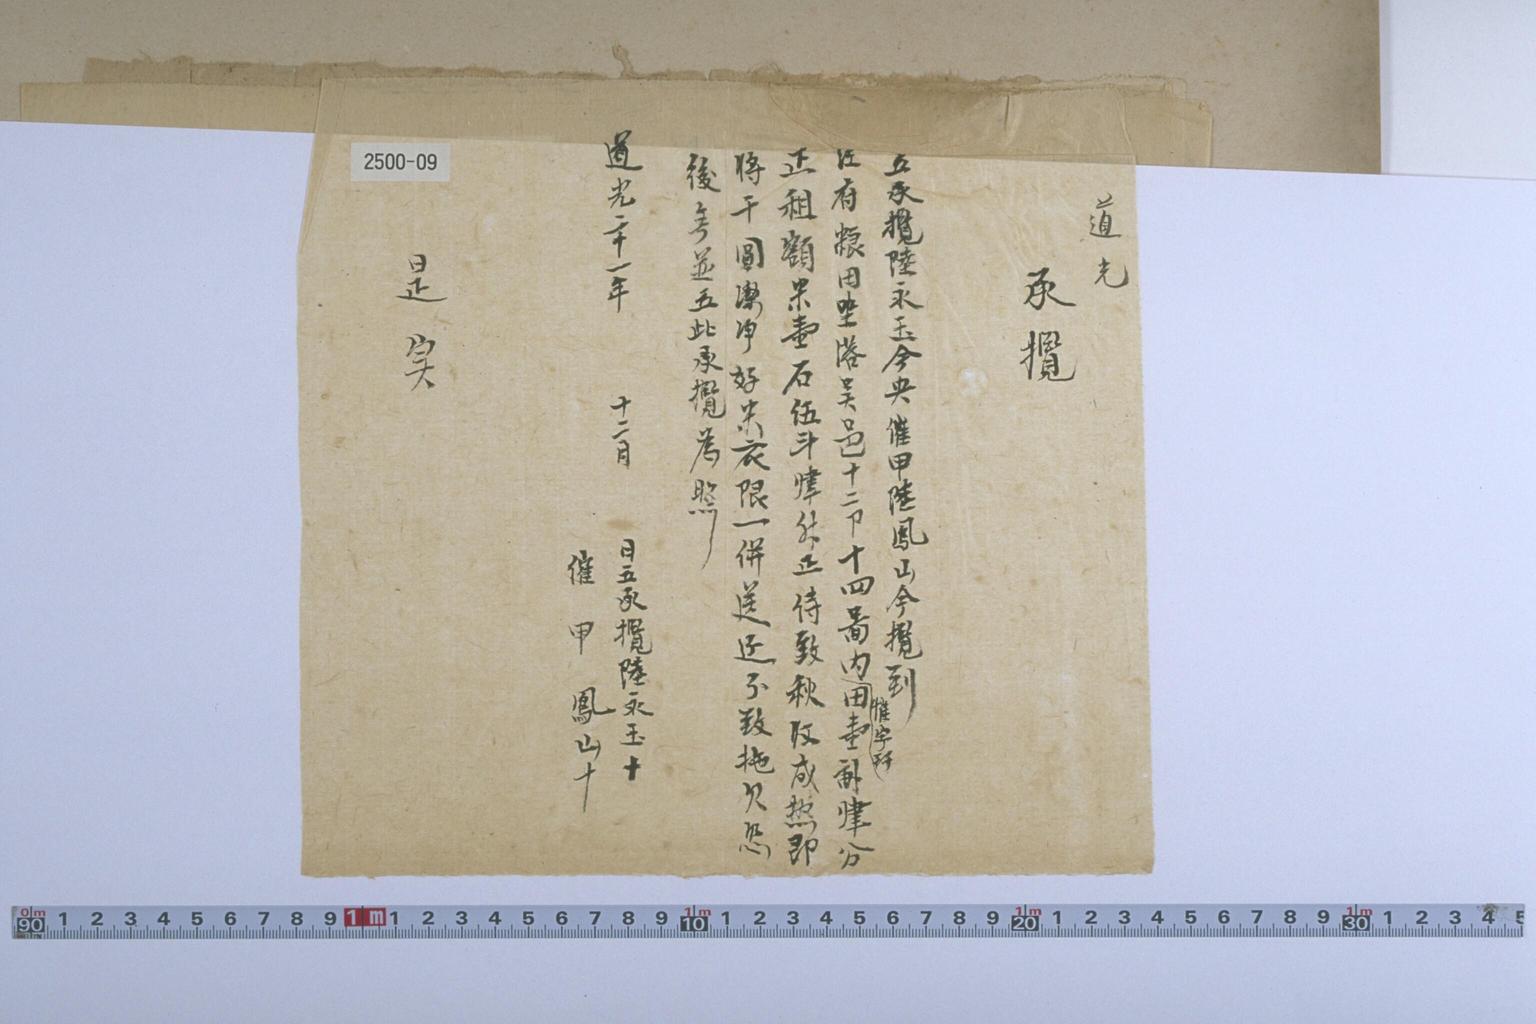 道光
承攬
立承攬陸永玉今央催甲陸鳳山今攬到
府粮田坐落吳邑十二卩十四啚内田壹
分
正租額米壷石伍斗 正待致秋收成熟即
將干圓潔净好米衣限一併送 不致拖欠恐
後無並立此承攬為照
道光二十一年 十二月 日立承攬陸永玉十
催甲 鳳山十
是实
2500-09
0m 90 1 2 3 4 5 6 7 8 9 1m 1 2 3 4 5 6 7 8 9 1m 10 1 2 3 4 5 6 7 8 9 1m 20 1 2 3 4 5 6 7 8 9 1m 30 1 2 3 4 5